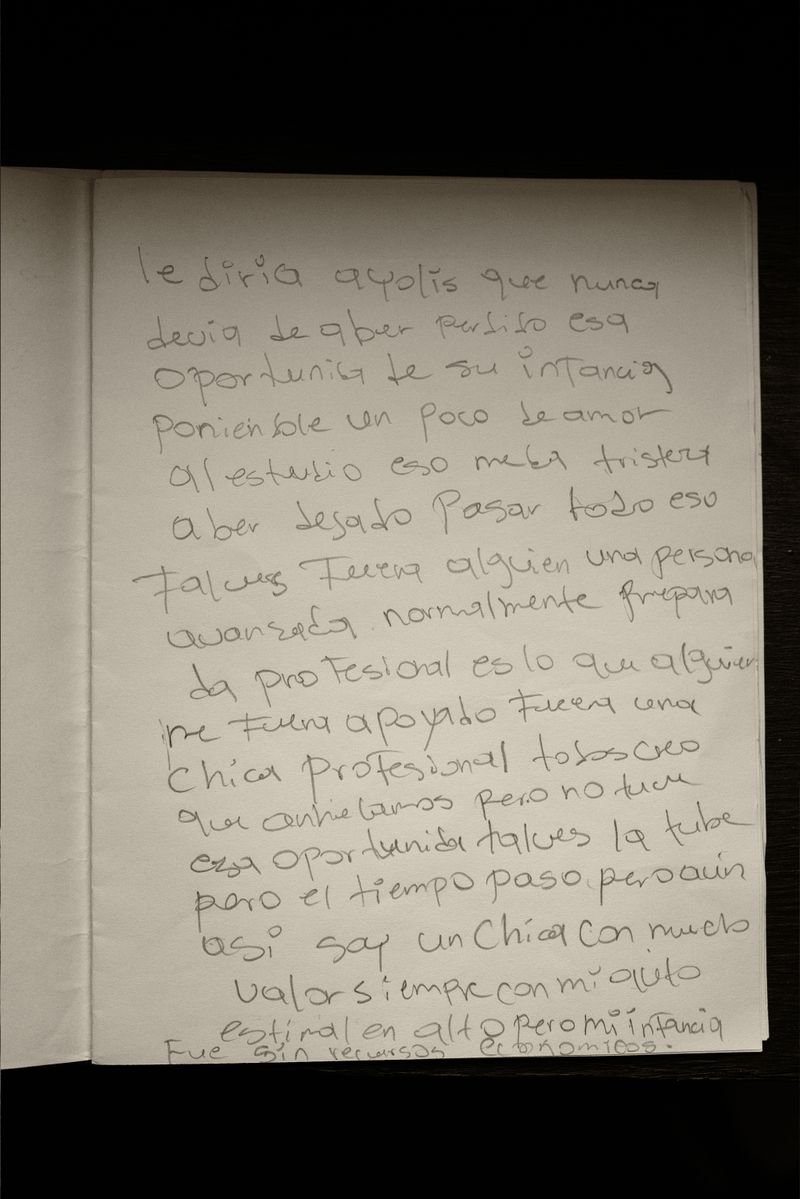 le diria ayolis que nunca
devia de aber perdido esa
oportunida de su infancia
poniendole un poco de amor
al estudio eso meda tristeza
aber dejado Pasar todo eso
Talves Fuera alguien una persona
avanzada normalmente prepara
da profesional es lo que alguien
me Fuera apoyado Fuera una
Chica profesional todos creo
que anhelamos pero no tuve
esa oportunida talves la tube
pero el tiempo paso pero aún
asi soy un Chica con mucho
valor siempre con mi auto
estimal en alto pero mi infancia
Fue sin recursos economicos.